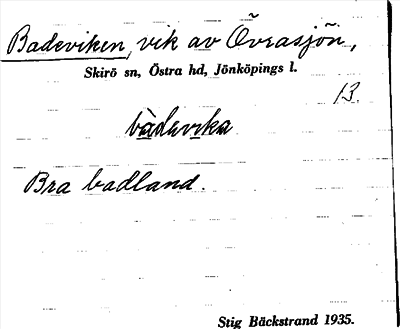 Badeviken, vik av Övrasjön,
Skirö sn, Östra hd, Jönköpings l.
13.
bàdevika
Bra badland.
Stig Bäckstrand 1935.